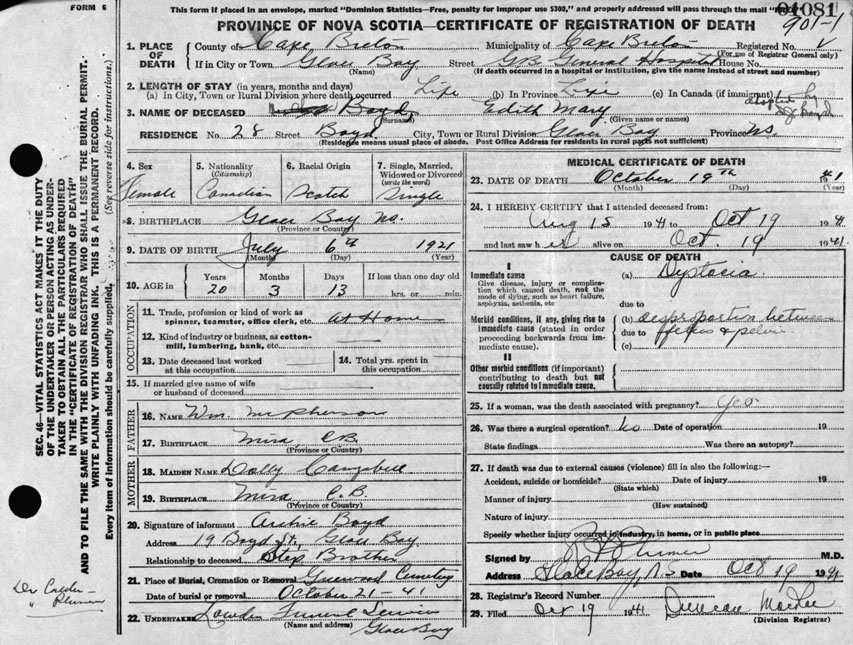 FORM 6
This form if placed in an envelope, marked "Dominion Statistics—Free, penalty for improper use $300," and properly addressed will pass through the mail
01081
PROVINCE OF NOVA SCOTIA—CERTIFICATE OF REGISTRATION OF DEATH
901-1
1. PLACE OF DEATH
County of Cape Breton Municipality of Cape Breton Registered No.
(For use of Registrar General only)
If in City or Town Glace Bay Street G.B. General Hospital House No.
(Name) (If death occurred in a hospital or institution, give the name instead of street and number)
2. LENGTH OF STAY (in years, months and days)
(a) In City, Town or Rural Division where death occurred Life (b) In Province Life (c) In Canada (if immigrant)
adopted by
Boyd
3. NAME OF DECEASED Boyd Edith Mary
Surname (Given name or names)
RESIDENCE No. 28 Street Boyd City, Town or Rural Division Glace Bay Province N.S.
(Residence means usual place of abode. Post Office Address for residents in rural parts not sufficient)
4. Sex 5. Nationality (Citizenship) 6. Racial Origin 7. Single, Married, Widowed or Divorced (write the word)
Female Canadian Scotch Single
8. BIRTHPLACE Glace Bay N.S.
(Province or Country)
9. DATE OF BIRTH July 6th 1921
(Month) (Day) (Year)
10. AGE in Years Months Days If less than one day old
20 3 13 hrs. or min.
OCCUPATION
11. Trade, profession or kind of work as spinner, teamster, office clerk, etc. at Home
12. Kind of industry or business, as cotton-mill, lumbering, bank, etc.
13. Date deceased last worked at this occupation
14. Total yrs. spent in this occupation
15. If married give name of wife or husband of deceased
FATHER
16. NAME Wm. McPherson
17. BIRTHPLACE Mira, C.B.
(Province or Country)
MOTHER
18. MAIDEN NAME Dolly Campbell
19. BIRTHPLACE Mira C.B.
(Province or Country)
20. Signature of informant Archie Boyd
Address 19 Boyd St, Glace Bay
Relationship to deceased Step Brother
21. Place of Burial, Cremation or Removal Greenwood Cemetery
Date of burial or removal October 21-41
22. UNDERTAKER Funeral Service
(Name and address) Glace Bay
MEDICAL CERTIFICATE OF DEATH
23. DATE OF DEATH October 19th 41
(Month) (Day) (Year)
24. I HEREBY CERTIFY that I attended deceased from:
Aug 15 1941 to Oct 19 1941
and last saw her alive on Oct. 19 1941.
CAUSE OF DEATH
I
Immediate cause
Give disease, injury or complication which caused death, not the mode of dying, such as heart failure, asphyxia, asthenia, etc
(a) Dystocia
due to
Morbid conditions, if any, giving rise to immediate cause (stated in order proceeding backwards from immediate cause).
(b) desproportion between
due to fetus & pelvis
(c)
II
Other morbid conditions (if important) contributing to death but not causally related to immediate cause.
25. If a woman, was the death associated with pregnancy? Yes
26. Was there a surgical operation? No Date of operation 19
State findings Was there an autopsy?
27. If death was due to external causes (violence) fill in also the following:—
Accident, suicide or homicide? Date of injury 19
(State which)
Manner of injury
(How sustained)
Nature of injury
Specify whether injury occurred in industry, in home, or in public place
Signed by M.D.
Address Glace Bay, N.S. Date Oct 19 1941
28. Registrar's Record Number
29. Filed Oct 19 1941 Duncan
(Division Registrar)
SEC. 46—VITAL STATISTICS ACT MAKES IT THE DUTY
OF THE UNDERTAKER OR PERSON ACTING AS UNDER-
TAKER TO OBTAIN ALL THE PARTICULARS REQUIRED
IN THE "CERTIFICATE OF REGISTRATION OF DEATH"
AND TO FILE THE SAME WITH THE DIVISION REGISTRAR WHO SHALL ISSUE THE BURIAL PERMIT.
WRITE PLAINLY WITH UNFADING INK. THIS IS A PERMANENT RECORD.
Every item of information should be carefully supplied. (See reverse side for instructions.)
Dr Calder-